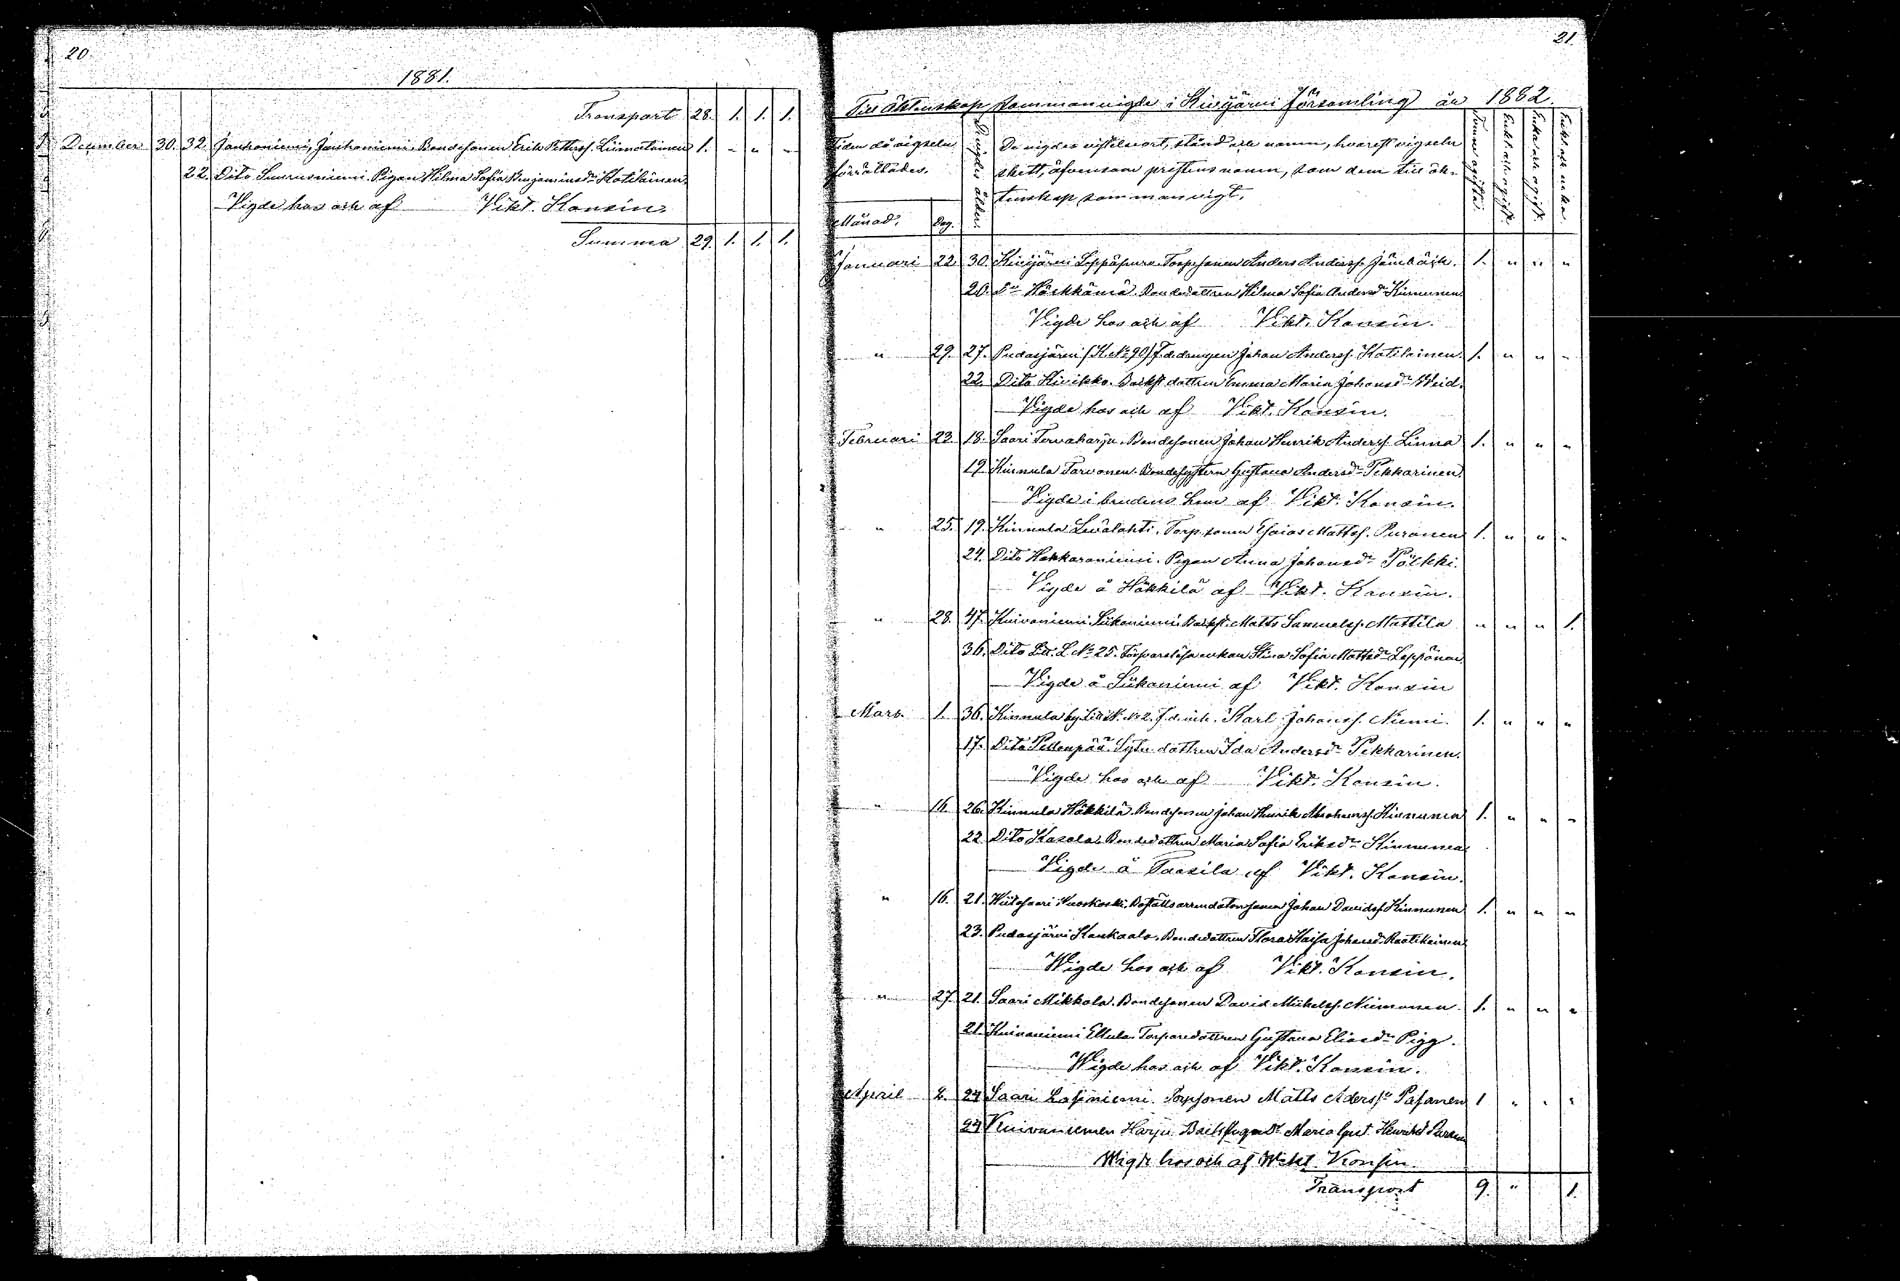 20.
1881.
Transport 28. 1. 1. 1.
December 30. 32. Jauhoniemi, Jauhoniemi. Bondesonen Erik Petterss. Linnalainen 1. " " "
22. Dito Pigan Hilma Sofia Benjaminsdr Kotilainen.
Vigde hos och af Vikt. Konsin.
Summa 29. 1. 1. 1.
21.
Till äktenskap sammanvigde i Kivijärvi församling år 1882.
Tiden då vigseln förrättades.
Månad. Dag.
De vigdes ålder.
De vigdes vistelseort, stånd och namn, hvarest vigseln
skett, äfvensom prestens namn, som dem till äk-
tenskap sammanvigt.
Januari 22 30. Kivijärvi Leppäpuro. Torpsonen Anders Anderss. Jämbäck. 1. " " "
20. Do Häkkämä Bondedottren Hilma Sofia Andersdr Kinnunen
Vigde hos och af Vikt. Konsin.
" 29. 27. Pudasjärvi (K. No 90) F.d. drengen Johan Anderss. Kotilainen. 1. " " "
22. Dito Kivikko. Backst. dottren Emma Maria Johansdr Weid.
Vigde hos och af Vikt. Konsin.
Februari 23. 18. Saari Tervaharju. Bondesonen Johan Henrik Anderss. Linna 1. " " "
19. Kinnula Tarvonen. Bondesystern Gustava Andersdr Pekkarinen.
Vigde i brudens hem af Vikt. Konsin.
" 25. 19. Kinnula Levälahti. Torp.sonen Esaias Mattss. Puranen 1. " " "
24. Dito Hakkaraniemi. Pigan Anna Johansdr Pölkki.
Vigde å Häkkilä af Vikt. Konsin.
" 28. 47. Kuivaniemi Siikaniemi. Backst. Matts Samuelss. Mattila " " " 1.
36. Dito Litt. L No 25. enkan Stina Sofia Mattsdr Leppänen
Vigde å Siikaniemi af Vikt. Konsin
Mars. 1. 36. Kinnula by Litt. N. No 2. F.d. Karl Johanss. Niemi. 1. " " "
17. Dito Pellonpää. dottren Ida Andersdr Pekkarinen.
Vigde hos och af Vikt. Konsin.
" 16 26. Kinnula Häkkilä. Bondesonen Johan Henrik Abrahamss. Kinnunen 1. " " "
22 Dito Kasala. Bondedottren Maria Sofia Eriksdr Kinnunen
Vigde å Taasila af Vikt. Konsin.
" 16. 21. Hiitosaari Bostellsarrendatorsonen Johan Davidss. Kinnunen 1. " " "
23. Pudasjärvi Kankaala. Bondedottren Flora Kaisa Johansd. Raatikainen
Wigde hos och af Vikt. Konsin.
" 27. 21. Saari Mikkala. Bondesonen David Michelss. Niemonen. 1. " " "
21. Kuivaniemi Torparedottren Gustava Eliasdr Pigg.
Wigde hos och af Vikt. Konsin.
April 2. 24 Saari Torpsonen Matts Pasanen 1 " " "
24 Kuivaniemen Harju Maria
Wigde hos och af Wikt. Konsin.
Transport 9. " 1.